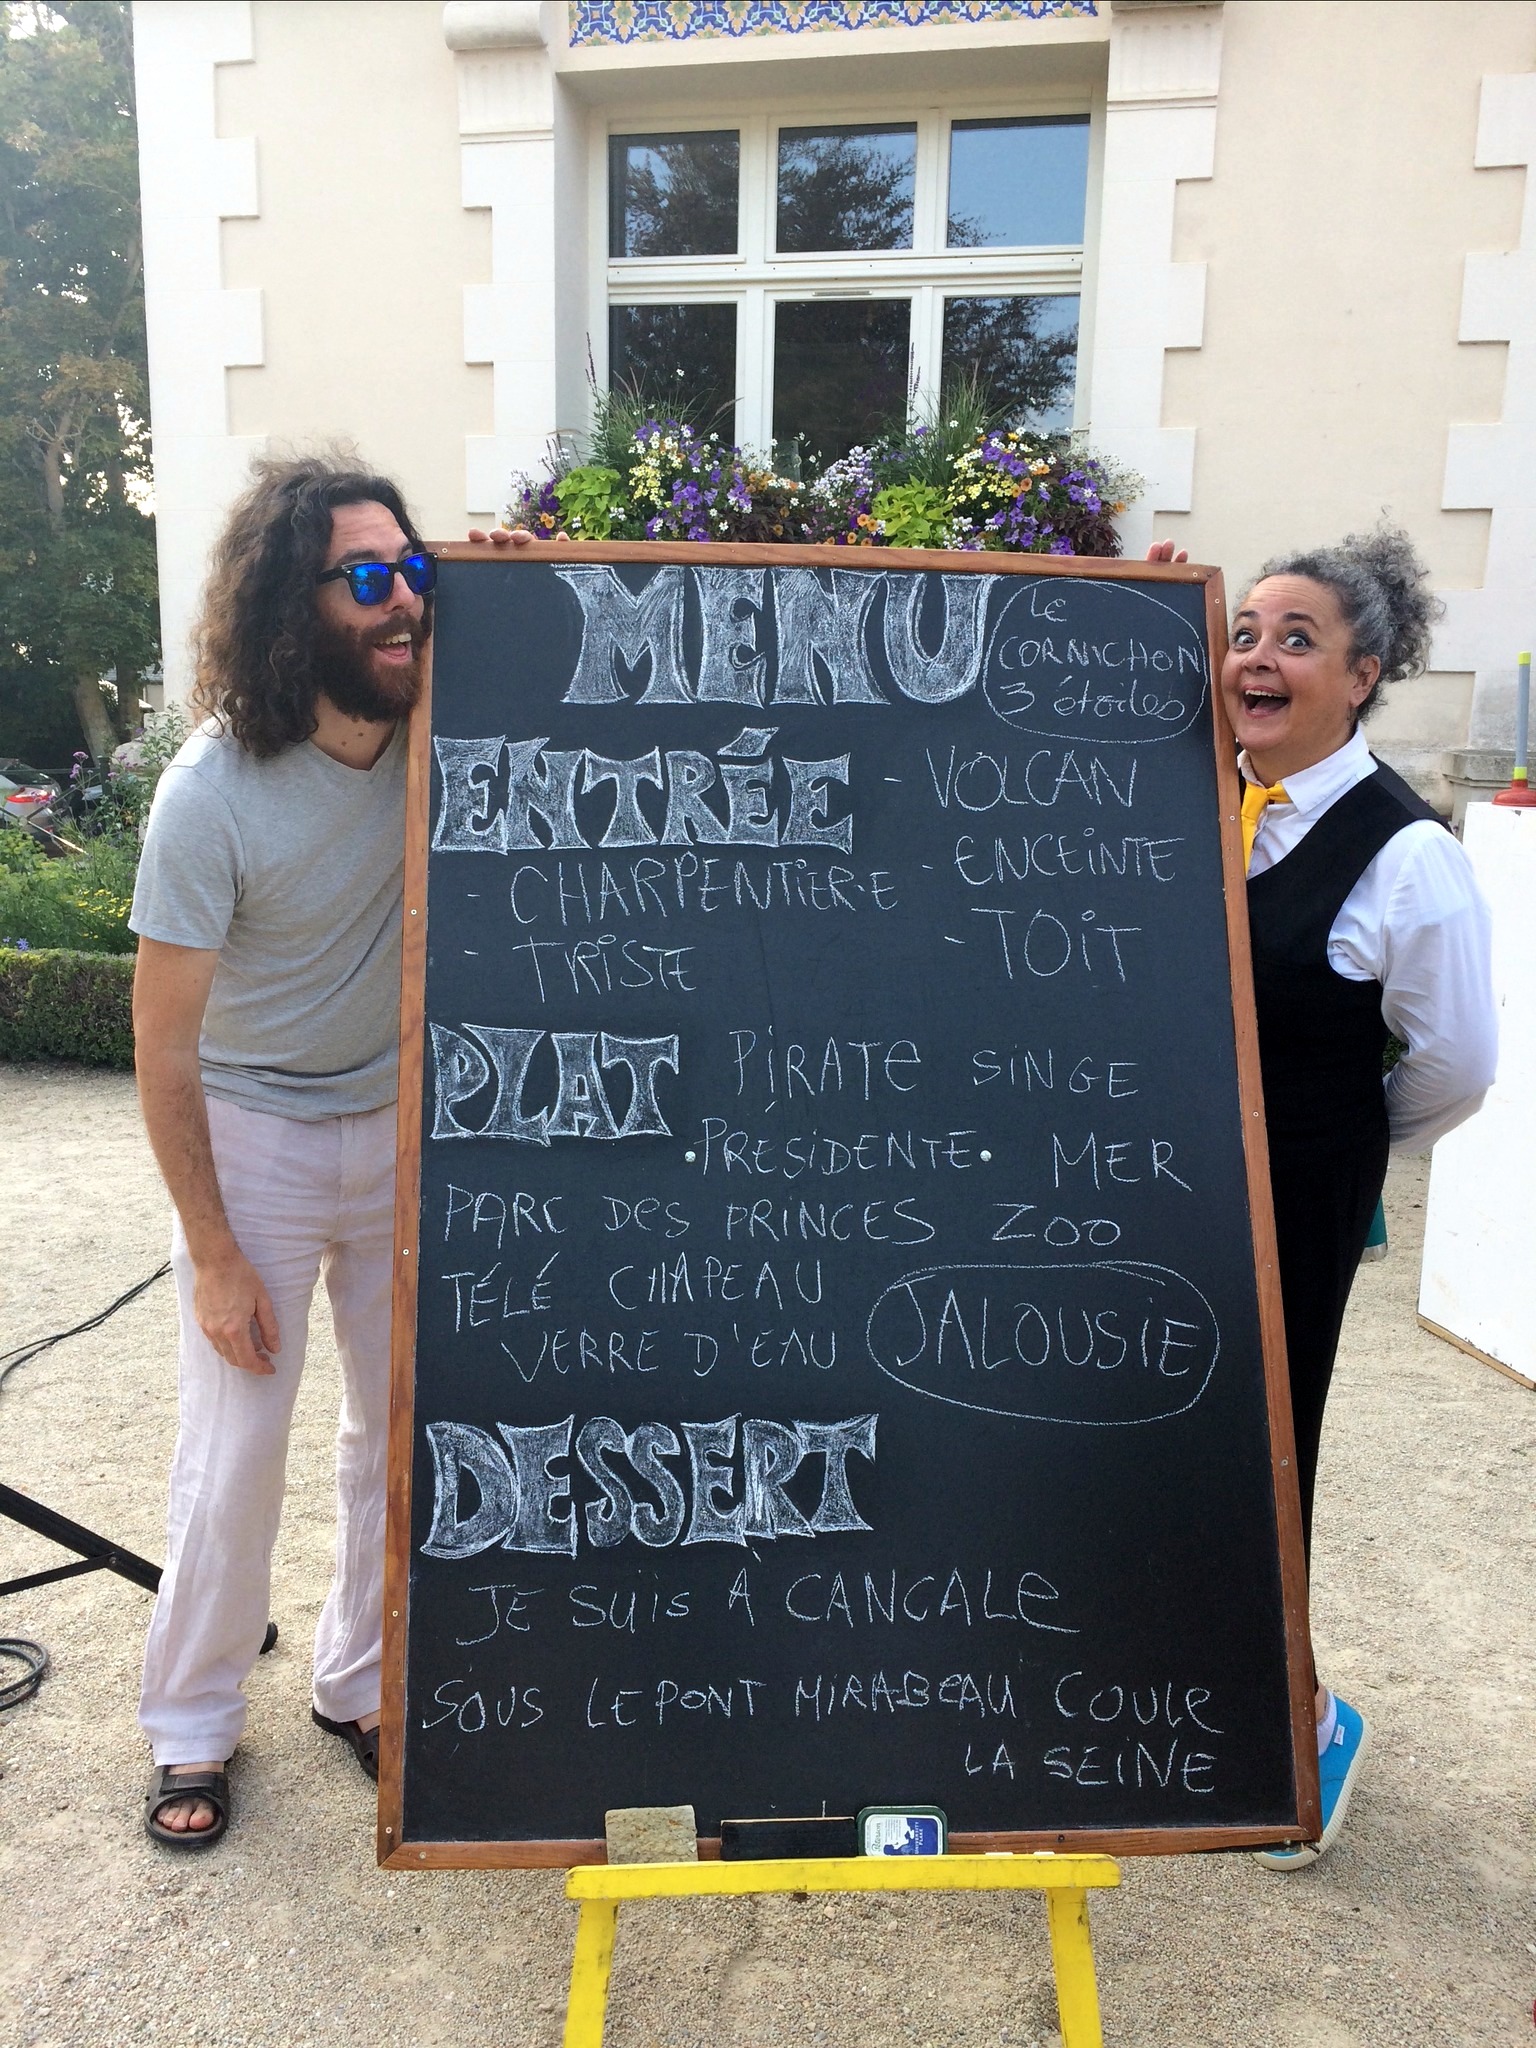 MENU
LE
CORNICHON
3 étoiles
ENTRÉE
- VOLCAN
- CHARPENTIER·E
- ENCEINTE
- TRISTE
- TOIT
PLAT
PIRATE SINGE
·PRÉSIDENTE· MER
PARC DES PRINCES ZOO
TÉLÉ CHAPEAU
VERRE D'EAU
JALOUSIE
DESSERT
JE SUiS A CANCALE
SOUS LE PONT MIRABEAU COULE
LA SEINE